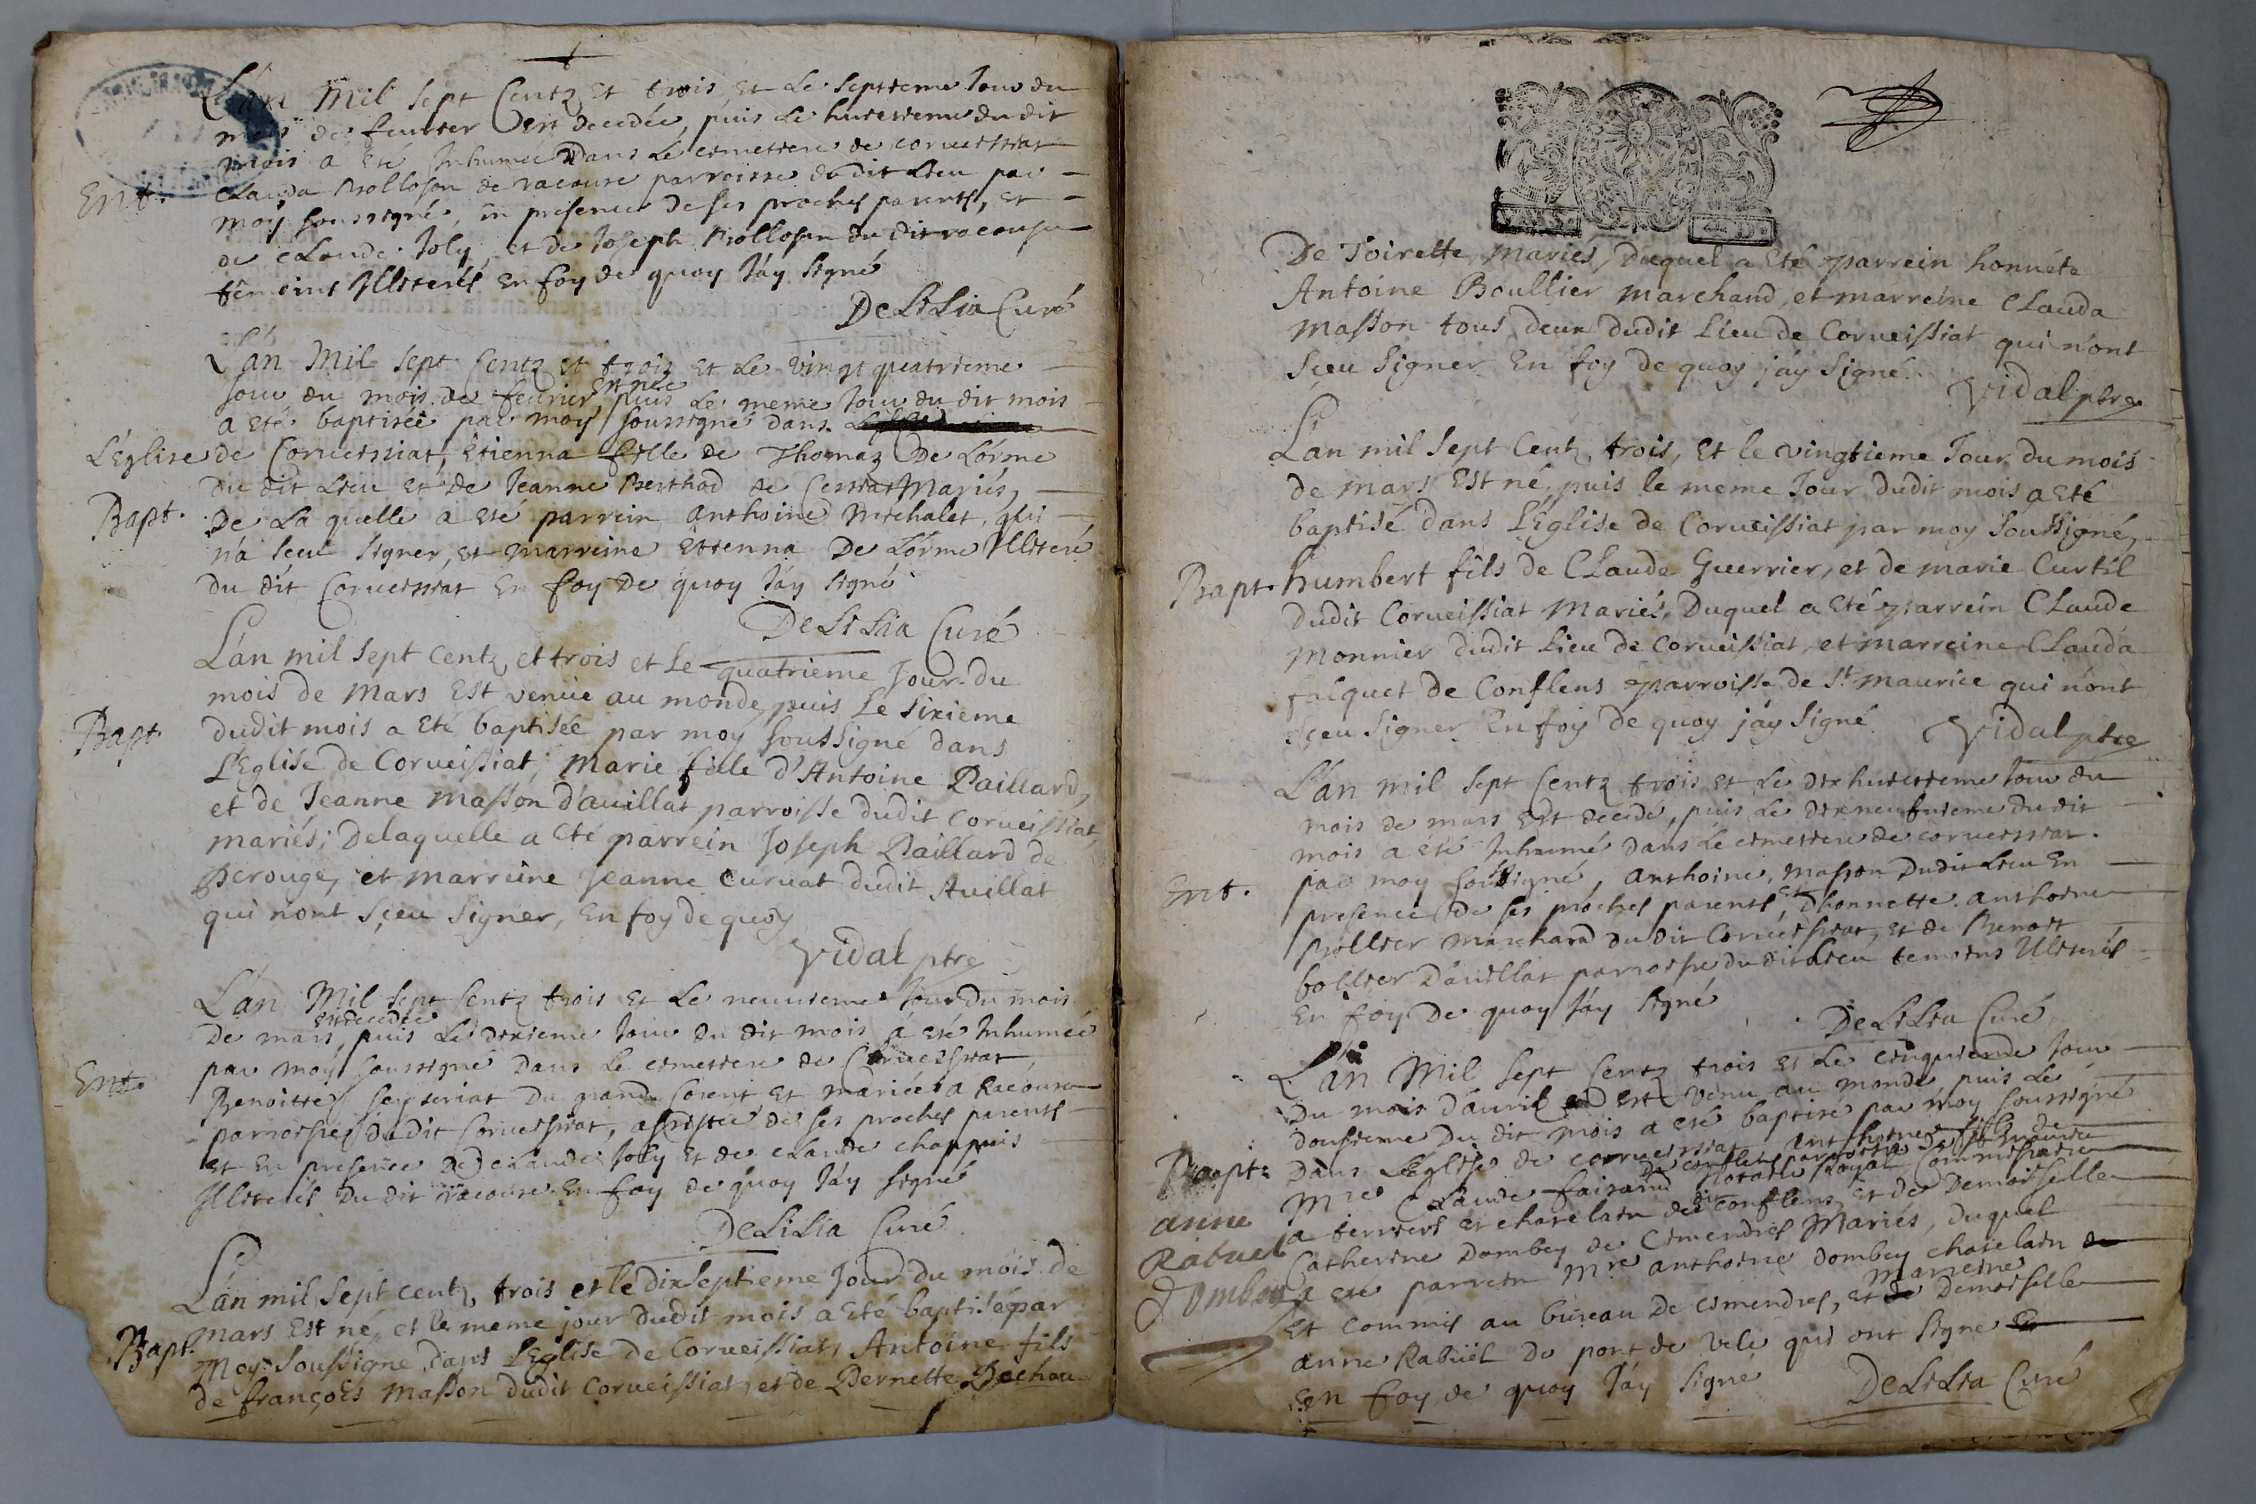 L'an Mil sept Centz et trois et le septieme Jour du
mois de feurier Est decedée, puis le huitieme du dit
mois a Eté Inhumée Dans le cimetiere de corueissiat
Ent.
Clauda Bolloson de racouse parroisse du dit Lieu par
moy soussigné, in presence de ses proches parents, et
de Claude Joly, et de Joseph Bolloson du dit racouse
têmoins Illiterés En foy de quoy Jáy signé
DeLiLia Curé
L'an Mil sept Centz et trois et le vingt quatrieme
Jour du mois de feurier Est née puis le meme Jour du dit mois
a eté baptisée par moy soussigné dans
L'Eglise de Corueissiat, Etienna fille de Thomas De Lórme
du dit Lieu et de Jeanne Berthod de Mariés,
Bapt.
De La quelle a eté parrein anthoine Michalet, qui
n'a sceu signer, et marreine Etienna De Lórme Illiteré
du dit Corueissiat En foy De quoy Jáy signé
DeLiLia Curé
L'an mil sept centz et trois et le quatrieme Jour du
mois de Mars Est venüe au monde, puis le sixieme
Bapt
dudit mois a Eté baptisée par moy soussigné dans
L'Eglise de Corueissiat, Marie fille d'Antoine Paillard,
et de Jeanne Masson d'auillat parroisse dudit Corueissiat,
mariés; Delaquelle a Eté parrein Joseph Paillard de
Perouge, et marreine Jeanne Curuat dudit Auillat
qui n'ont sçeu signer, En foy de quoy
Vidal ptre
L'an Mil sept Centz trois et le neuuieme Jour du mois
De mars, est decedée puis Le dixieme Jour du dit mois á eté Inhumée
par moy soussigné Dans le cimetiere de Corueissiat
Ent.
Benoitte Du grand Corent et mariée a Racouse
parroisse du dit Corueissiat, assistée de ses proches parents
et En presence De Claude Joly et de Claude chappuis
Illiterés Du dit racouse En foy de quoy Jáy signé
DeLiLia Curé
L'an mil sept centz trois et le dixseptieme Jour du mois de
mars Est né, et le meme jour dudit mois a Eté baptisé par
Bapt.
Moy soussigné, dans l'Eglise de Corueissiat, Antoine fils
de françois Masson dudit Corueissiat, et de Pernette Pechou
De Toirette Mariés, Duquel a Eté parrein honnéte
Antoine Boullier marchand, et marreine Clauda
Masson tous deux dudit Lieu de Corueissiat qui n'ont
sçeu signer En foy de quoy jáy signé
Vidal ptre
L'an mil sept Centz trois, et le vingtieme Jour du mois
de mars Est né, puis le meme Jour dudit mois a Eté
baptisé dans L'Eglise de Corueissiat par moy soussigné,
Bapt. humbert fils de Claude Guerrier, et de marie Curtil
dudit Corueissiat Mariés, Duquel a Eté parrein Claude
Monnier dudit Lieu de Corueissiat, et marreine Clauda
falquet de Conflens parroisse de St. Maurice qui n'ont
sçeu signer En foy de quoy jáy signé
Vidal ptre
L'án mil sept Centz trois et le dixhuitieme Jour du
mois de mars Est decedé, puis Le dixneufuieme du dit
mois a eté Inhumé dans le cimetiere de corueissiat
Ent.
par moy soussigné, anthoine Masson Dudit Lieu En
presence de ses proches parents, et D'honnette anthoine
Bollier Marchand du dit Corueissiat, et de Benoit
bollier D'auillat parroisse du dit Lieu temoins Illiterés
En foy De quoy Jáy signé
DeLiLia Curé
L'án Mil sept Centz trois et Le cinquieme Jour
Du mois d'auril Est venu au monde, puis Le
Dousieme Du dit mois a eté baptisé par moy soussigné
Bapt:
Dans L'Eglise de corueissiat, anthoine fils de
de conflens parroisse de St Maurice
Mre Claude faisand Notaire Royal Commissaire
anne
Rabuel
Dombey
a terriers et chatelain de Conflens, et de Demoiselle
Catherine Dombey de Cimendres Mariés, duquel
a eté parrein Mre anthoine Dombey chatelain
et commis au bureau De Cimendres, et Marreine Demoiselle
anne Rabuël De pont de vele qui ont signé
En foy de quoy Jáy signé
DeLiLia Curé